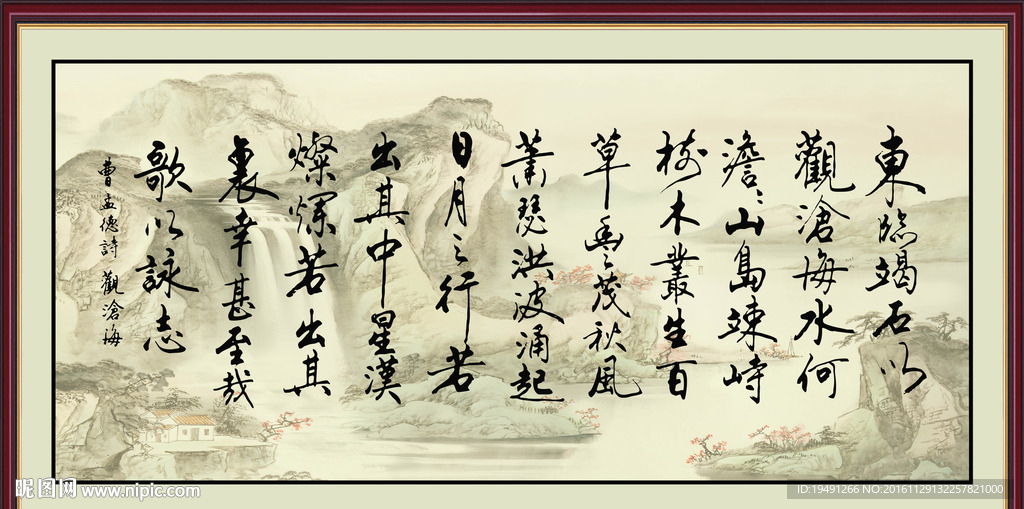 東臨竭石以
觀滄海水何
澹々山島竦峙
樹木叢生百
草豐々茂秋風
蕭瑟洪波涌起
日月之行若
出其中星漢
燦爛若出其
裏幸甚至哉
歌以詠志
曹孟德詩 觀滄海
昵图网 www.nipic.com
ID:19491266 NO:20161129132257821000